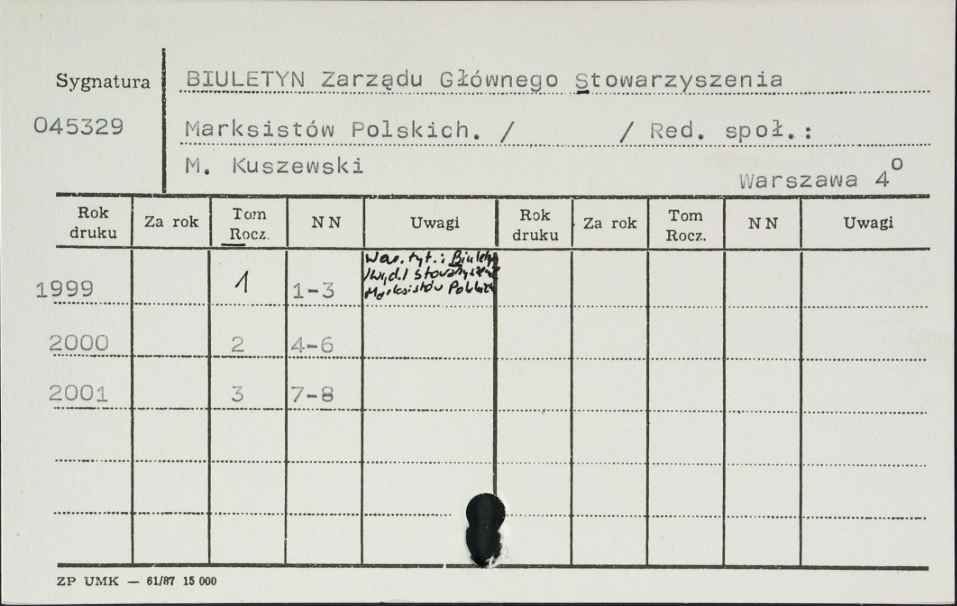 Sygnatura
BIULETYN Zarządu Głównego Stowarzyszenia
045329
Marksistów Polskich. / / Red. społ.:
M. Kuszewski
Warszawa 4°
Rok druku Za rok Tom Rocz. NN Uwagi Rok druku Za rok Tom Rocz. NN Uwagi
War. tyt.: Biuletyn
/Wyd./ Stowarzyszenie
1999 1 1-3 Marksistów
2000 2 4-6
2001 3 7-8
ZP UMK — 61/87 15 000